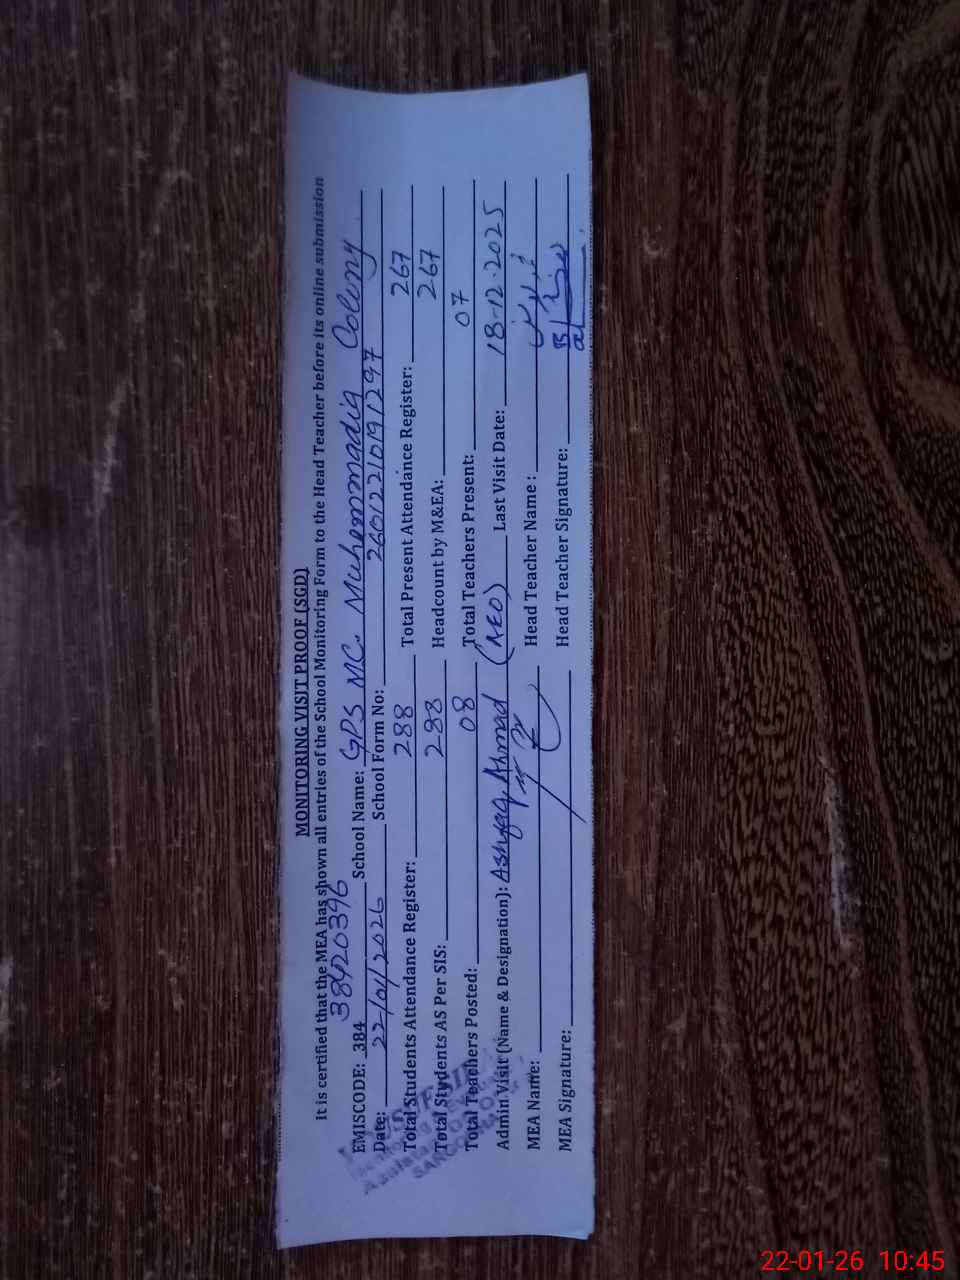 MONITORING VISIT PROOF (SGD)
It is certified that the MEA has shown all entries of the School Monitoring Form to the Head Teacher before its online submission
38420396
EMISCODE: 384 School Name: GPS MC. Muhammadia Colony
Date: 22/01/2026 School Form No: 26012210191297
Total Students Attendance Register: 288 Total Present Attendance Register: 267
Total Students AS Per SIS: 288 Headcount by M&EA: 267
Total Teachers Posted: 08 Total Teachers Present: 07
Admin Visit (Name & Designation): Ashfaq Ahmad (AEO) Last Visit Date: 18-12-2025
MEA Name: Head Teacher Name :
MEA Signature: Head Teacher Signature:
22-01-26 10:45